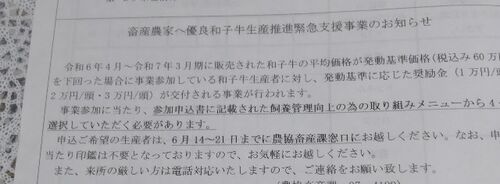 畜産農家へ優良和子牛生産推進緊急支援事業のお知らせ
令和6年4月～令和7年3月期に販売された和子牛の平均価格が発動基準価格（税込み60万
を下回った場合に事業参加している和子牛生産者に対し、発動基準に応じた奨励金（1万円/
2万円/頭・3万円/頭）が交付される事業が行われます。
事業参加に当たり、参加申込書に記載された飼養管理向上の為の取り組みメニューから4
選択していただく必要があります。
申込ご希望の生産者は、6月14～21日までに農協畜産課窓口にお越しください。なお、申
当たり印鑑は不要となっておりますので、お気軽にお越しください。
また、来所の厳しい方は電話対応いたしますので、ご連絡をお願い致します。